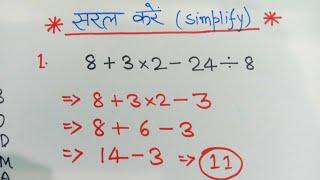 * सरल करें (simplify) *
1. 8 + 3 × 2 - 24 ÷ 8
⇒ 8 + 3×2 - 3
⇒ 8 + 6 - 3
⇒ 14 - 3 ⇒ 11
O
D
M
A